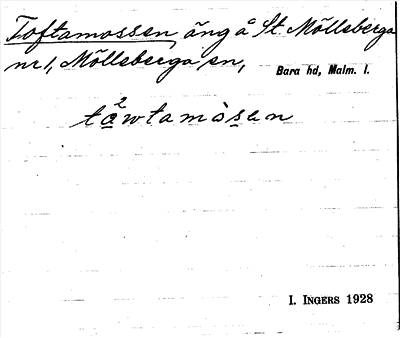 Toftamossen, äng å St. Mölleberga
nr 1, Mölleberga sn,
Bara hd, Malm. l.
tạ²wtamòsạn
I. INGERS 1928